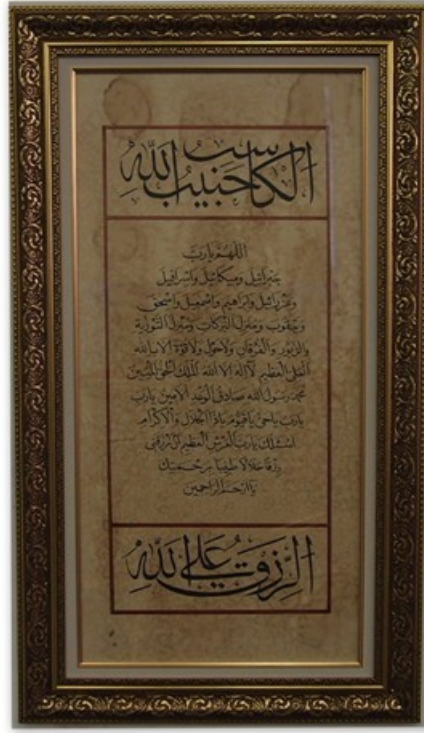 الكاسب حبيب الله
اللهم يا رب
جبرائيل وميكائيل واسرافيل
وعزرائيل وابراهيم واسمعيل واسحق
ويعقوب ومنزل البركات ومنزل التورية
والزبور والفرقان ولا حول ولا قوة الا بالله
العلى العظيم لا اله الا الله الملك الحق المبين
محمد رسول الله صادق الوعد الامين يا رب
يا رب يا حى يا قيوم يا ذا الجلال والاكرام
اسئلك يا رب العرش العظيم ان ترزقنى
رزقا حلالا طيبا برحمتك
يا ارحم الراحمين
الرزق على الله